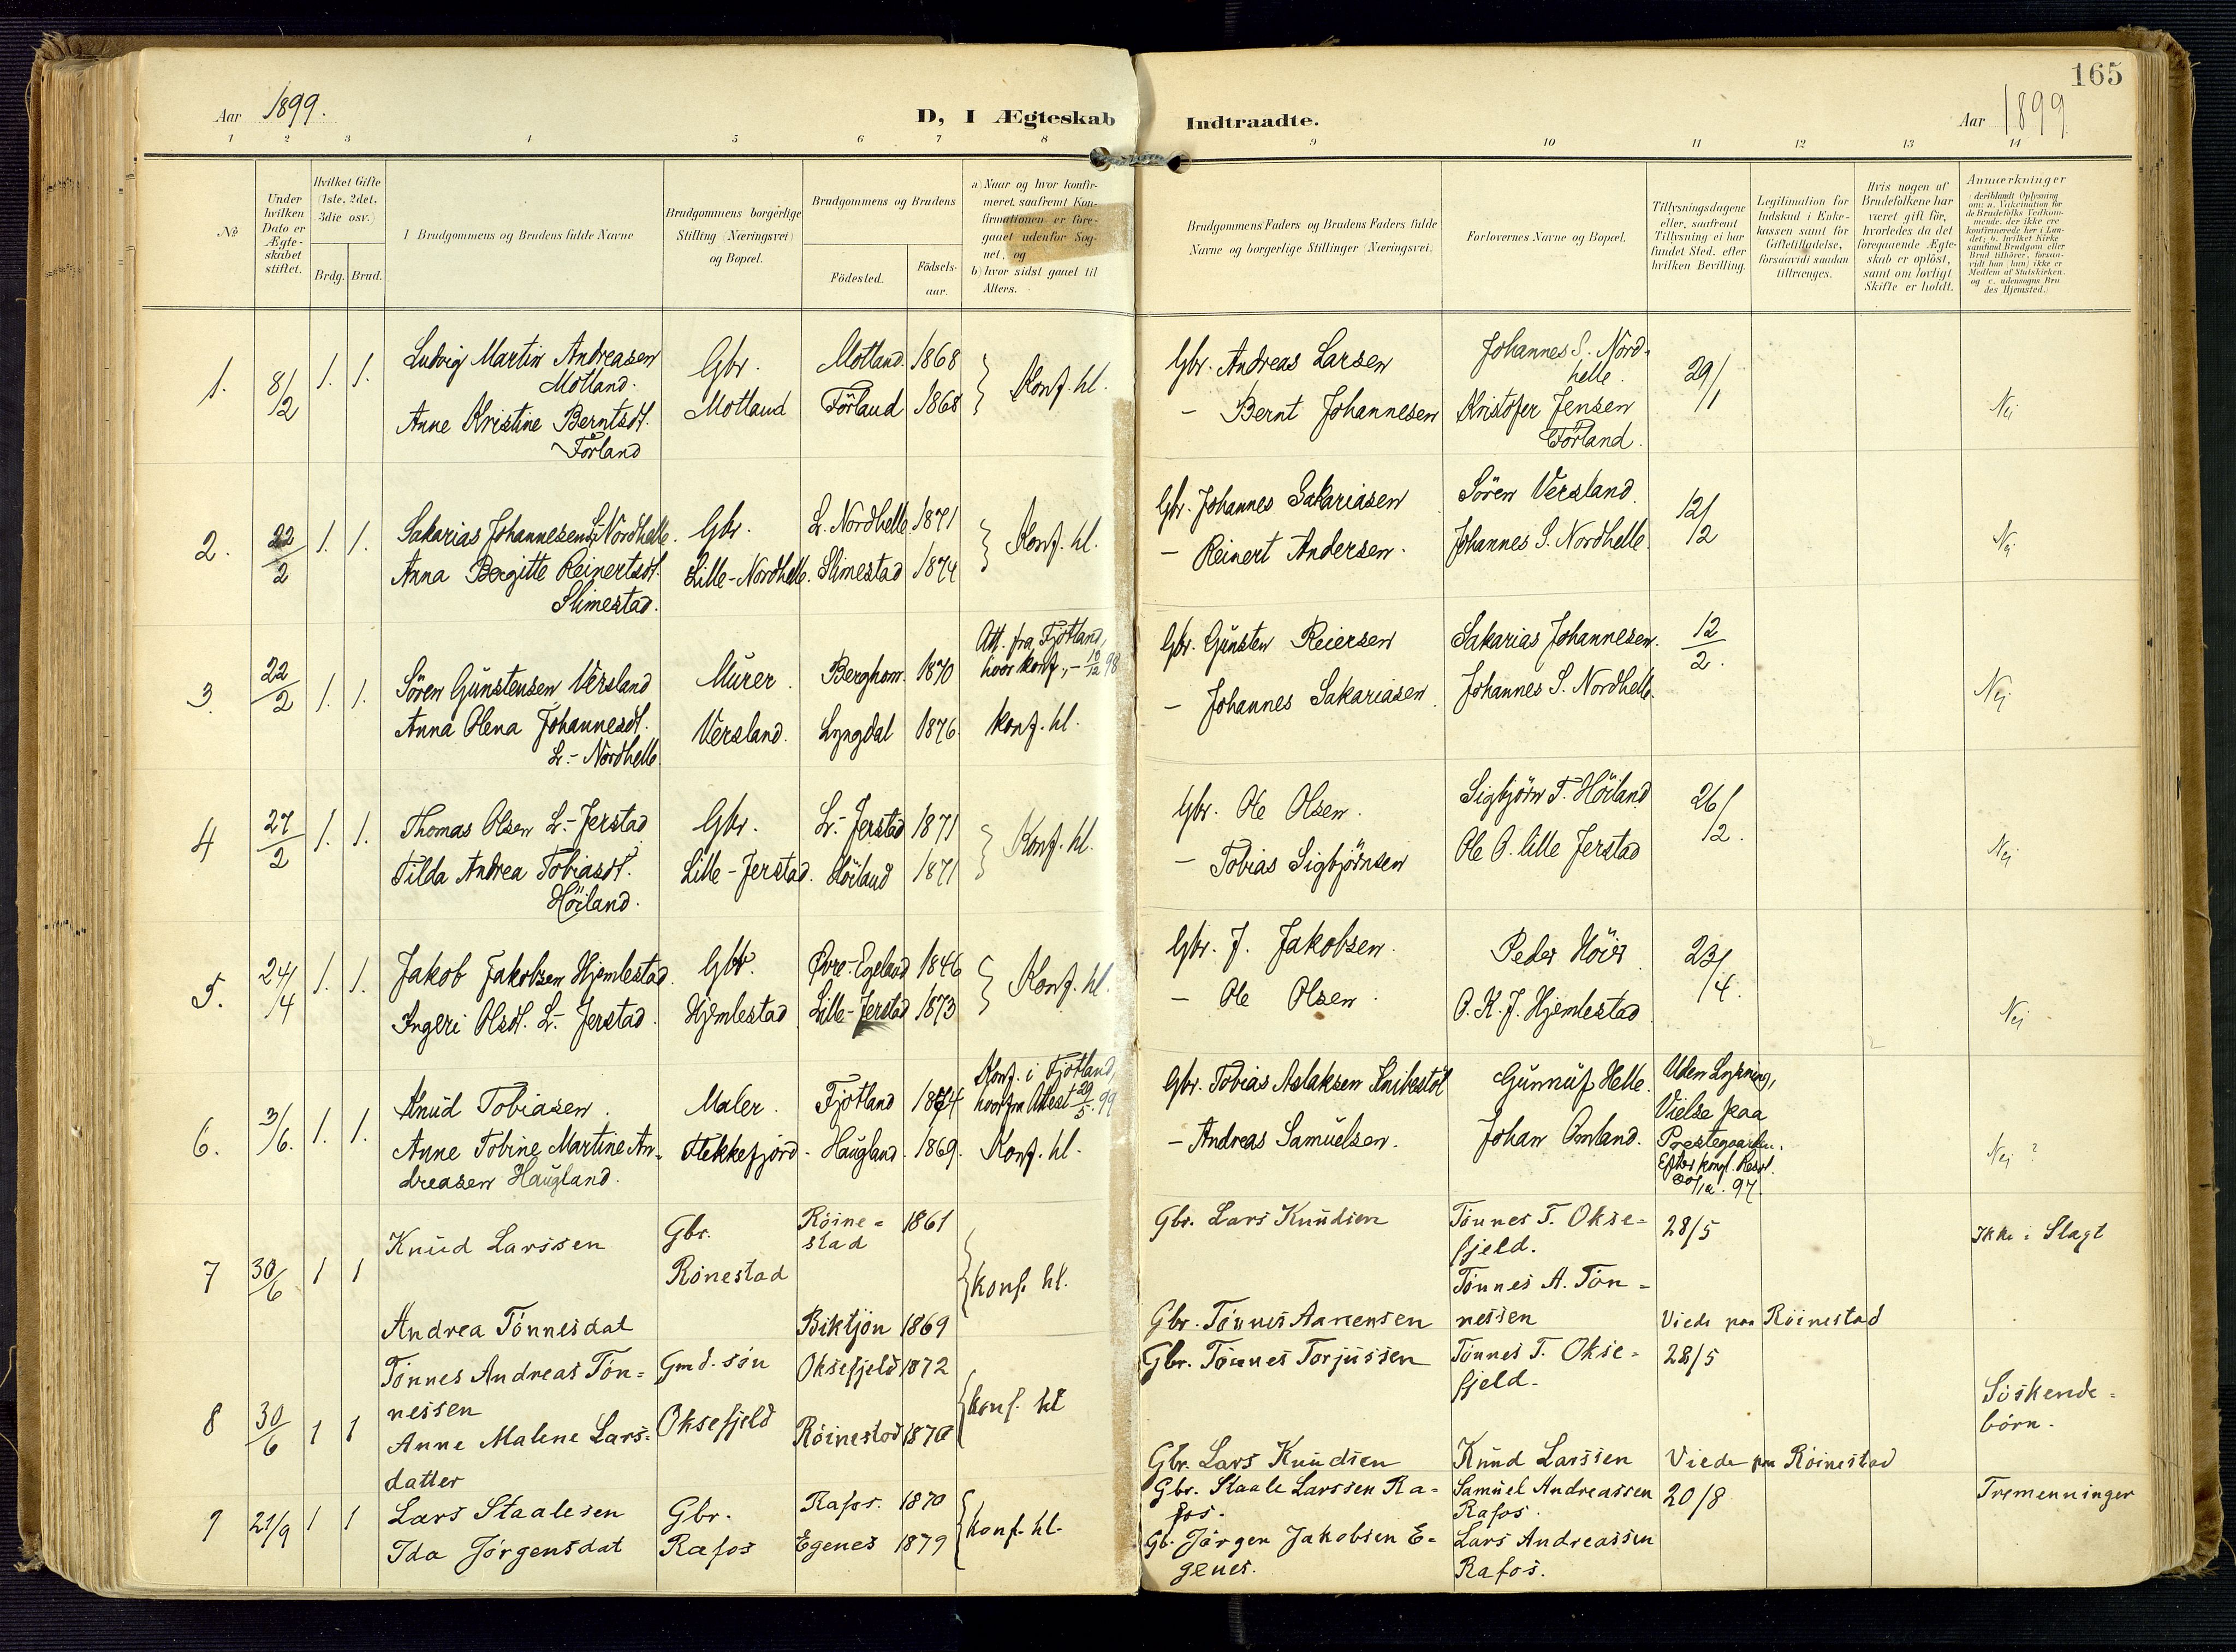 165
Aar 1899.
D, I Ægteskab Indtraadte.
Aar 1899
1 2 3 4 5 6 7 8 9 10 11 12 13 14
No
Under hvilken Dato er Ægteskabet stiftet.
Hvilket Gifte (1ste, 2det, 3die osv.)
Brdg. Brud.
I Brudgommens og Brudens fulde Navne
Brudgommens borgerlige Stilling (Næringsvei) og Bopæl.
Brudgommens og Brudens
Fødested.
Fødselsaar.
a) Naar og hvor konfirmeret, saafremt Konfirmationen er foregaaet udenfor Sognet, og
b) hvor sidst gaaet til Alters.
Brudgommens Faders og Brudens Faders fulde Navne og borgerlige Stillinger (Næringsvei)
Forlovernes Navne og Bopæl.
Tillysningsdagene eller, saafremt Tillysning ei har fundet Sted, efter hvilken Bevilling.
Legitimation for Indskud i Enkekassen samt for Giftetilladelse, forsaavidt saadan tiltrænges.
Hvis nogen af Brudefolkene har været gift før, hvorledes da det foregaaende Ægteskab er opløst, samt om lovligt Skifte er holdt.
Anmærkninger (deriblandt Oplysning om: a. Vakcination for de Brudefolks Vedkommende, der ikke ere konfirmerede her i Landet; b. hvilket Kirkesamfund Brudgom eller Brud tilhører, forsaavidt han (hun) ikke er Medlem af Statskirken, og c. udensogns Brudes Hjemsted.)
1. 8/2 1. 1.
Ludvig Martin Andreasen
Motland.
Anne Kristine Berntsdt.
Förland
Gbr.
Motland
Motland. 1868
Förland 1868
Konf. hl.
Gbr. Andreas Larsen
- Bernt Johannesen
Johannes S. Nord-
helle.
Kristofer Jensen
Förland.
29/1
Nej
2. 22/2 1. 1.
Sakarias Johannesen L. Nordhelle.
Anna Bergitte Reinertsdt.
Slimestad.
Gbr.
Lille-Nordhelle.
L. Nordhelle 1871
Slimestad 1874
Konf. hl.
Gbr. Johannes Sakariasen
- Reinert Andersen.
Sören Versland.
Johannes S. Nordhelle.
12/12
Nej
3. 22/2 1. 1.
Sören Gunstensen Versland
Anna Olena Johannesdt.
L.- Nordhelle
Murer.
Versland.
Berghom. 1870
Lyngdal 1876
Att. fra Fjotland,
hvor konf., - 10/12 98
konf. hl.
Gbr. Gunsten Reiersen
- Johannes Sakariasen.
Sakarias Johannesen.
Johannes S. Nordhelle.
12/2.
Nej
4 27/2 1. 1.
Thomas Olsen L.- Jerstad
Tilda Andrea Tobiasdt.
Höiland.
Gbr.
Lille-Jerstad.
L.- Jerstad 1871
Höiland 1871
Konf. hl.
Gbr. Ole Olsen.
- Tobias Sigbjörnsen
Sigbjörn T. Höiland
Ole O. lille Jerstad
26/12.
Nej
5. 24/4 1. 1.
Jakob Jakobsen Hjemlestad.
Ingeri Olsdt. L.- Jerstad.
Gbr.
Hjemlestad
Øvre-Egeland 1846
Lille-Jerstad 1873
Konf. hl.
Gbr. J. Jakobsen.
- Ole Olsen.
Peder Höie
O. K. J. Hjemlestad
23/4.
Nej
6. 3/6. 1. 1.
Knud Tobiasen.
Anne Tobine Martine An-
dreasen Haugland.
Maler.
Flekkefjord.
Fjotland 1874
Haugland. 1869.
Konf. i Fjotland,
hvorfra Attest 29/5. 99
Konf. hl.
Gbr. Tobias Aslaksen Knibestöl
- Andreas Samuelsen.
Gunnuf Helle.
Johan Omland.
Uden Lysning,
Vielse paa
Prestegaarden.
Efter kongl. Resol.
Nej ?
7 30/6 1 1
Knud Larssen
Andrea Tönnesdat
Gbr.
Rönestad
Röine-
stad 1861
Biktjön 1869
konf. hl.
Gbr. Lars Knudsen
Gbr. Tönnes Aanensen
Tönnes T. Okse-
fjeld.
Tönnes A. Tön-
nessen
28/5
Viede paa Röinestad
Ikke i Slagt
8 30/6 1 1
Tönnes Andreas Tön-
nessen
Anne Malene Lars-
datter
Gmd. sön
Oksefjeld
Oksefjeld 1872
Röinestad 1870
konf. hl
Gbr. Tönnes Torjussen
Gbr. Lars Knudsen
Tönnes T. Okse-
fjeld.
Knud Larssen
28/5
Viede paa Röinestad
Söskende-
börn.
9 21/9 1 1
Lars Staalesen
Ida Jörgensdat
Gbr.
Rafos
Rafos. 1870
Egenes 1879
konf. hl.
Gbr. Staale Larssen Ra-
fos.
Gb. Jörgen Jakobsen E-
genes.
Samuel Andreassen
Rafos.
Lars Andreassen
Rafos.
20/8
Tremenninger